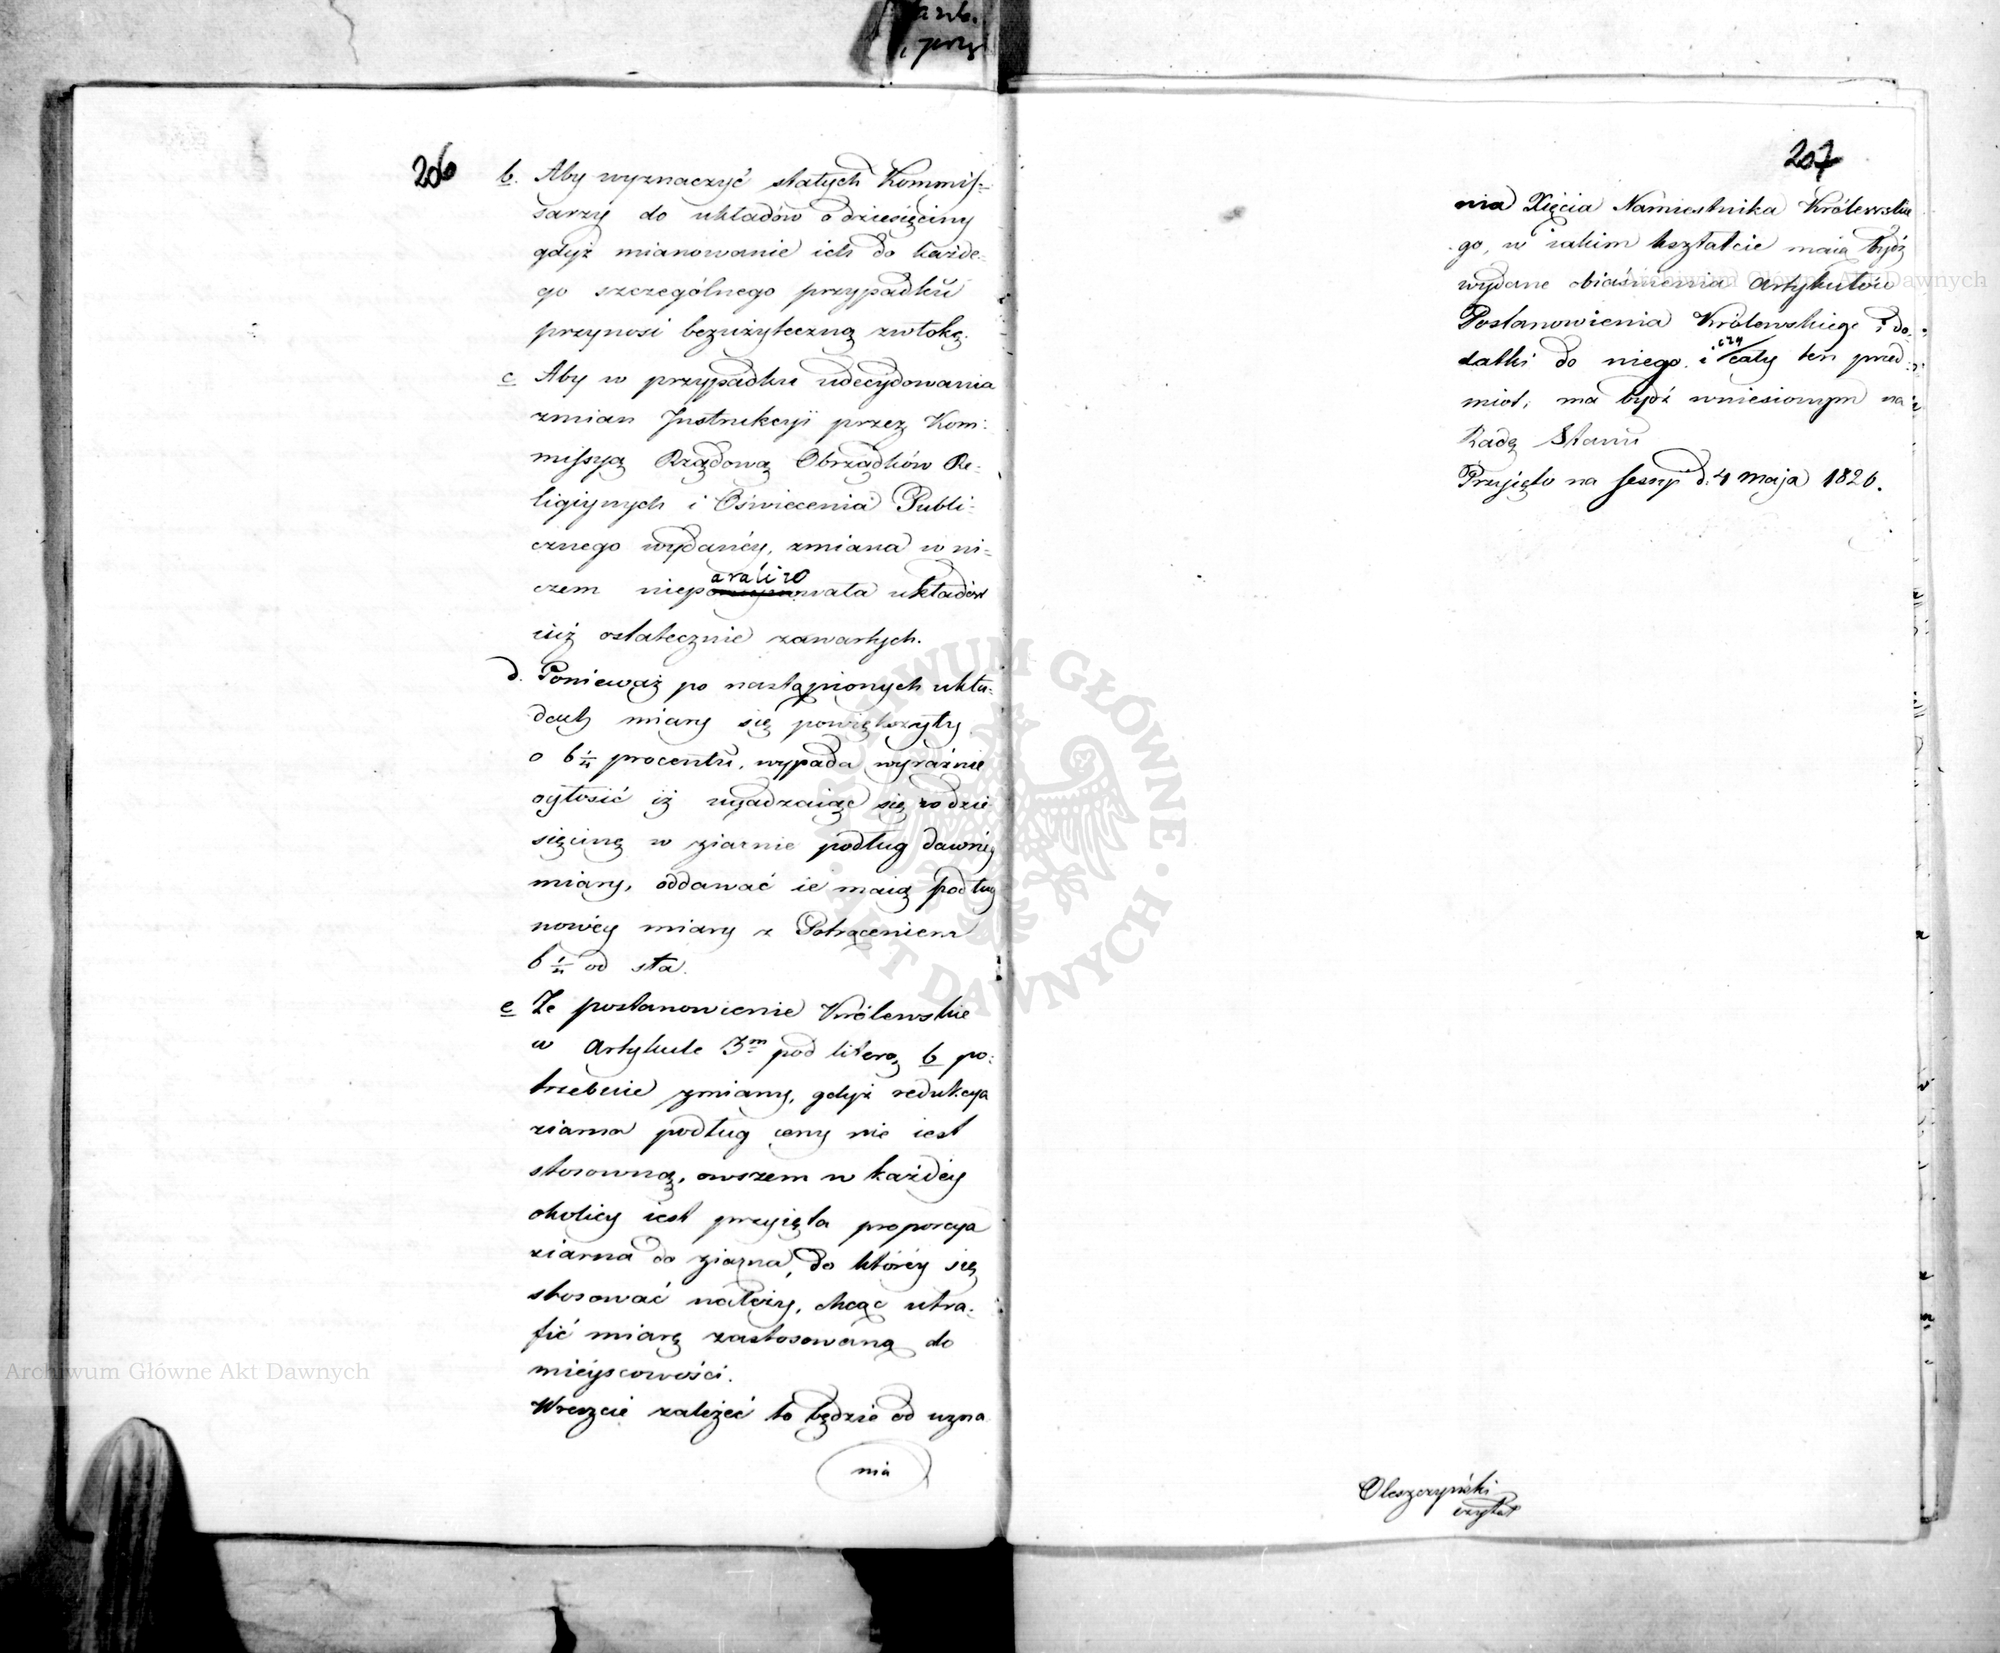 206
b. Aby wyznaczyć stałych Kommis-
sarzy do układów o dziesięciny
gdyż mianowanie ich do każde-
go szczególnego przypadku
przynosi bezużyteczną zwłokę.
c Aby w przypadku udecydowania
zmian Instrukcyi przez Kom-
missyą Rządową Obrządków Re-
ligiynych i Oświecenia Publi-
cznego wydaney, zmiana w ni-
araliżo
czem niep wała układów
iuż ostatecznie zawartych.
d. Ponieważ po nastąpionych ukła-
dach miary się powiększyły
o 6 procentu, wypada wyraźnie
ogłosić iż ugadzaiąc się o dzie
sięcinę w ziarnie podług dawney
miary, oddawać ie maią podług
nowéy miary z Potrąceniem
6 od sta.
e Że postanowienie Królewskie
w Artykule 3m pod literą b po-
trzebuie zmiany, gdyż redukcya
ziarna podług ceny nie iest
stosowną, owszem w każdéy
okolicy iest przyięta proporcya
ziarna do ziarna, do któréy się
stosować należy, chcąc utra-
fić miarę zastosowaną do
mieyscowości.
Wreszcie zależeć to będzie od uzna
nia
207
nia Xięcia Namiestnika Królewskie
go, w iakim kształcie maią bydź
wydane obiaśnienia Artykułów
Postanowienia Królewskiego i do
datki do niego. i czy cały ten przed-
miot, ma bydź wniesionym na
Radę Stanu
Przyięto na sessyi d. 4 Maja 1826.
Oleszczyński
czytał
Archiwum Główne Akt Dawnych
Archiwum Główne Akt Dawnych
ARCHIWUM GŁÓWNE AKT DAWNYCH